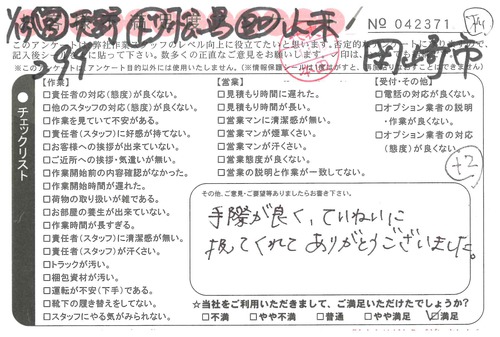 No 042371
このアンケートは弊社作業スタッフのレベル向上に役立てたいと思います。否定的な
記入後シー に貼って下さい。数多くの正直なご意見をお願いします。
岡崎市
399
【作業】
□責任者の対応(態度)が良くない。
□他のスタッフの対応(態度)が良くない。
□作業を見ていて不安がある。
□責任者(スタッフ)に好感が持てない。
□お客様への挨拶が出来ていない。
□ご近所への挨拶・気遣いが無い。
□作業開始前の内容確認がなかった。
□作業開始時間が遅れた。
□荷物の取り扱いが雑である。
□お部屋の養生が出来ていない。
□作業時間が長すぎる。
□責任者(スタッフ)に清潔感が無い。
□責任者(スタッフ)が汗くさい。
□トラックが汚い。
□梱包資材が汚い。
□運転が不安(下手)である。
□靴下の履き替えをしてない。
□スタッフにやる気がみられない。
チェックリスト
【営業】
□見積もり時間に遅れた。
□見積もり時間が長い。
□営業マンに清潔感が無い。
□営業マンが煙草くさい。
□営業マンが汗くさい。
□営業態度が良くない。
□営業の説明と作業が一致してない。
【受付・その他】
□電話の対応が良くない。
□オプション業者の説明
・作業が良くない。
□オプション業者の対応
(態度)が良くない。
+2
その他、ご意見・ご要望等ありましたらお書き下さい。
手際が良く、ていねいに
扱てくれて ありがとうございました。
☆当社をご利用いただきまして、ご満足いただけたでしょうか?
□不満 □やや不満 □普通 □やや満足 ☑満足